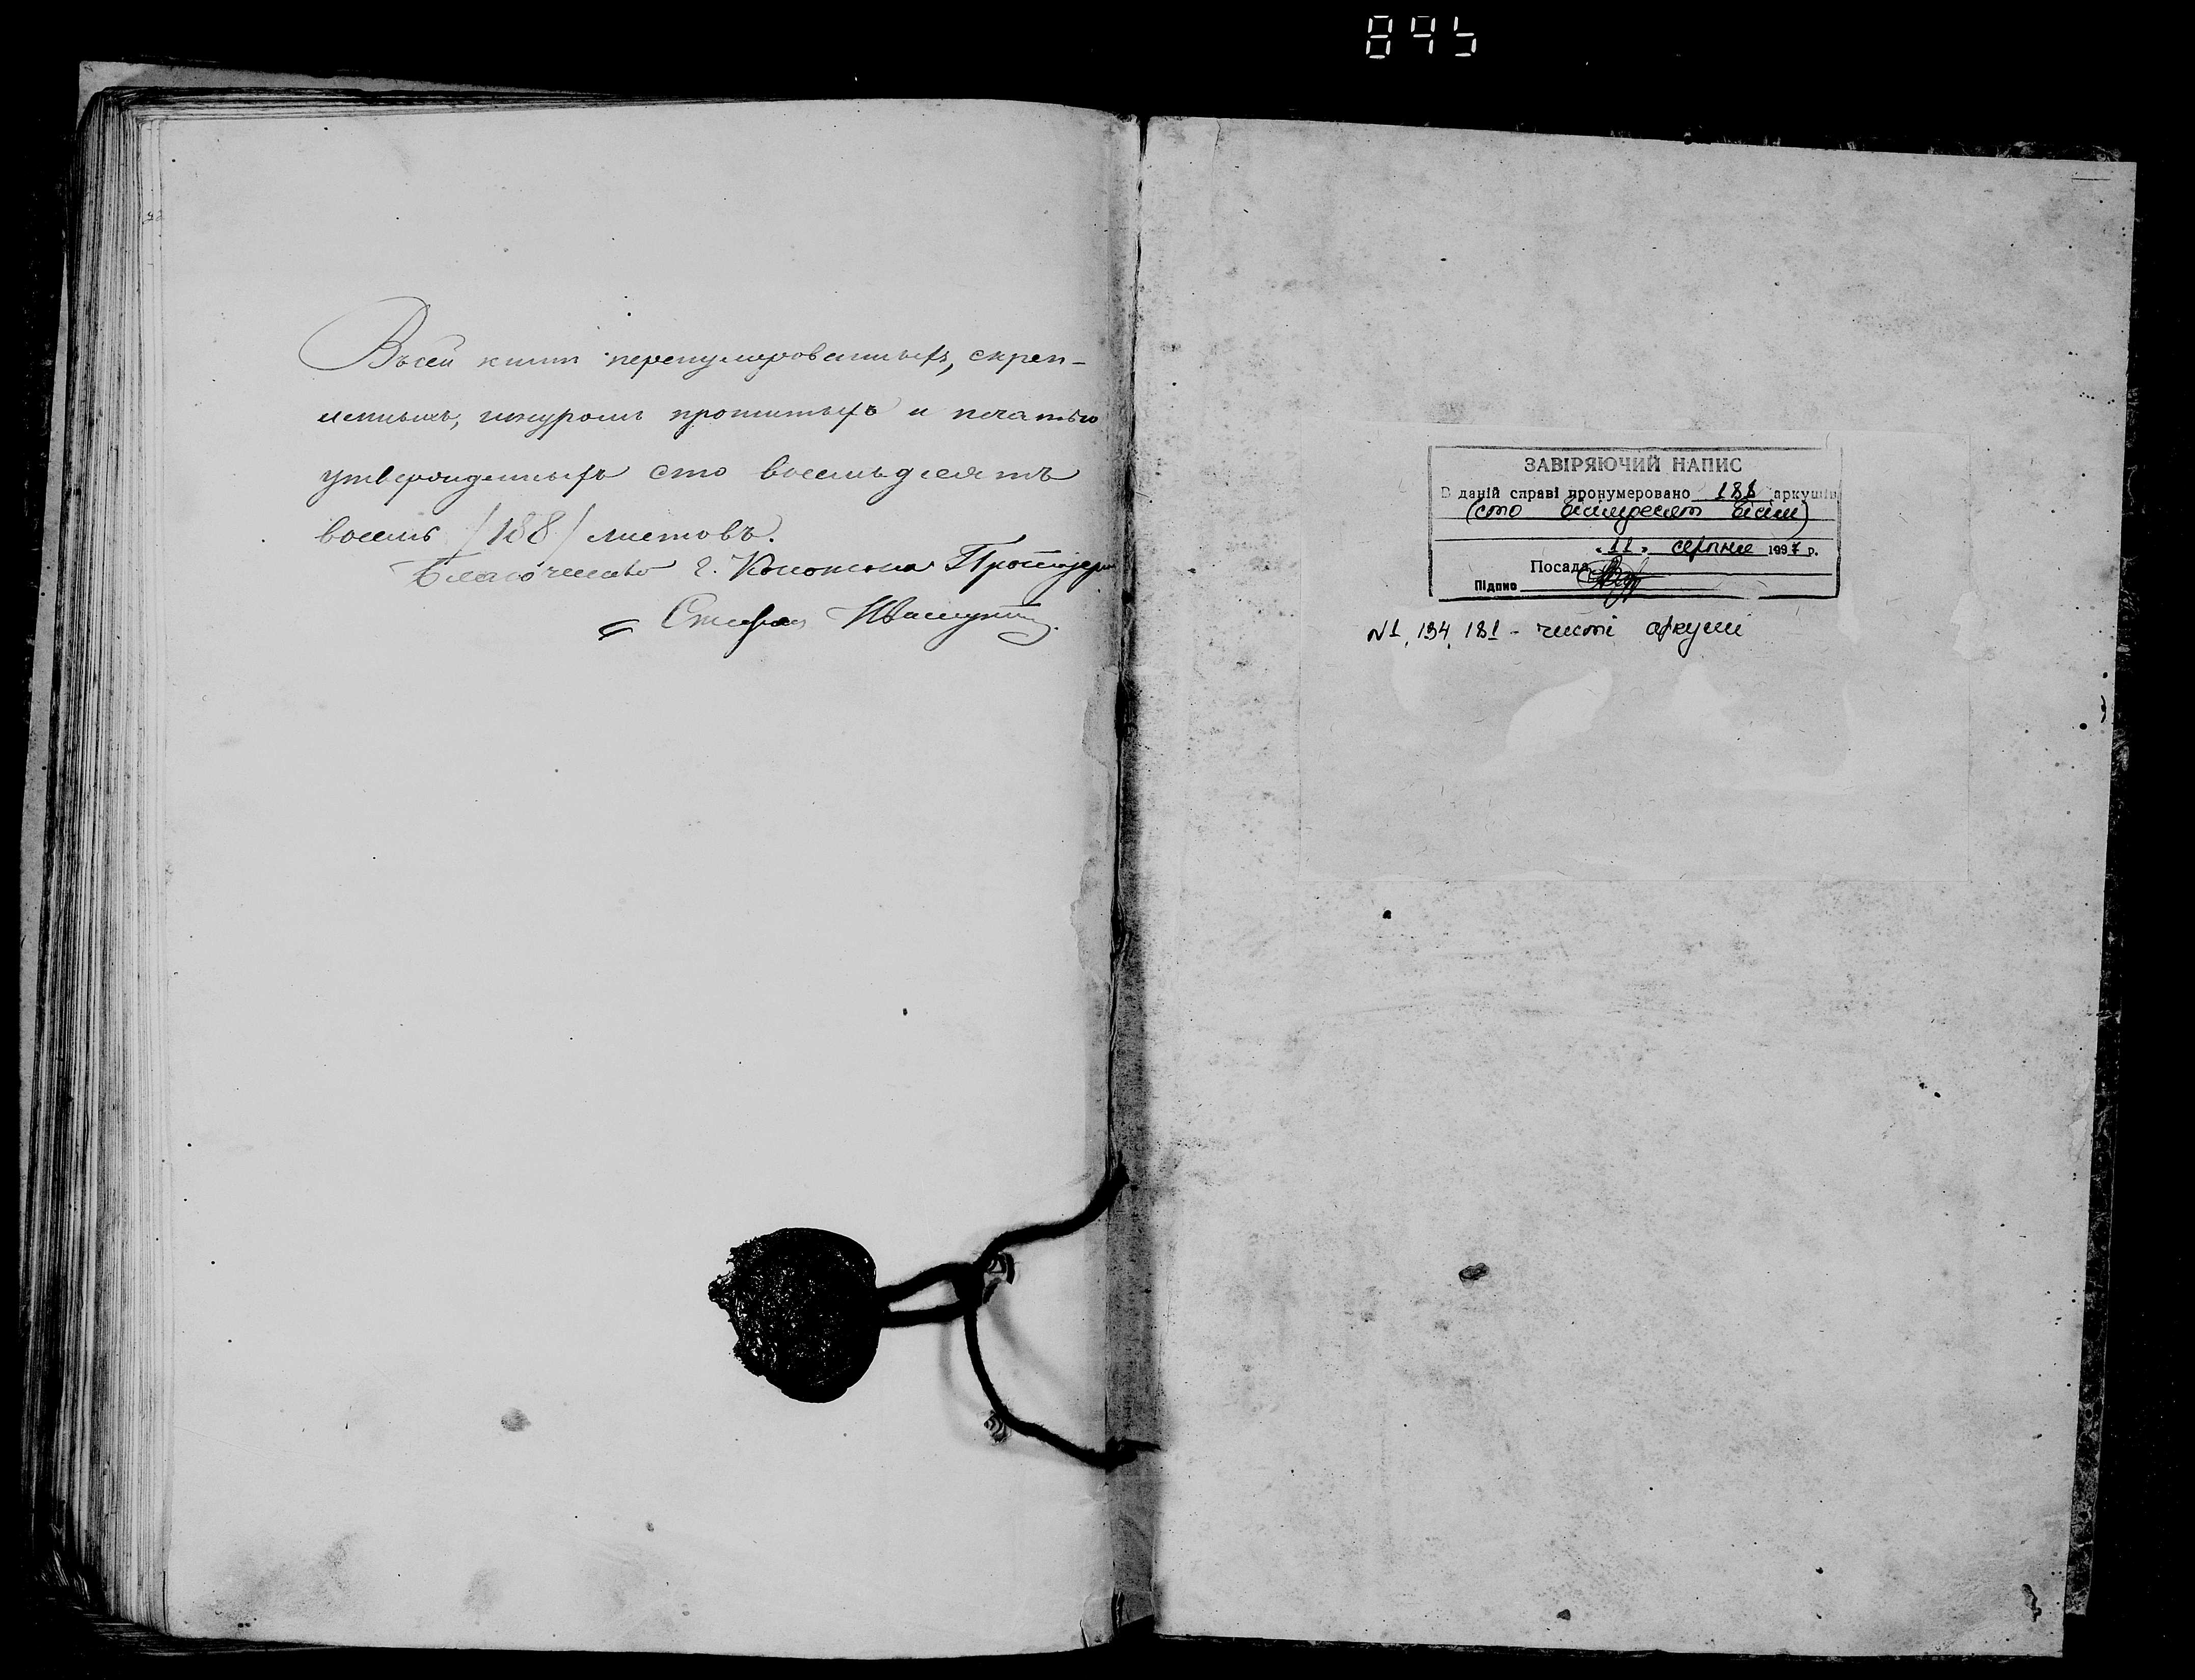 895
Въсей книги перенумерованныхъ, скреп-
леныхъ, шнуромъ прошитыхъ и печатью
утвержденныхъ сто восемьдесятъ
восемь /188/ листовъ.
г. Конотопа Протоіерей
Стефан
ЗАВІРЯЮЧИЙ НАПИС
В даній справі пронумеровано 188 аркушів
(сто вісімдесят вісім)
"11" серпня 1997 р.
Посада
Підпис
N1, 134, 181 - чисті аркуші